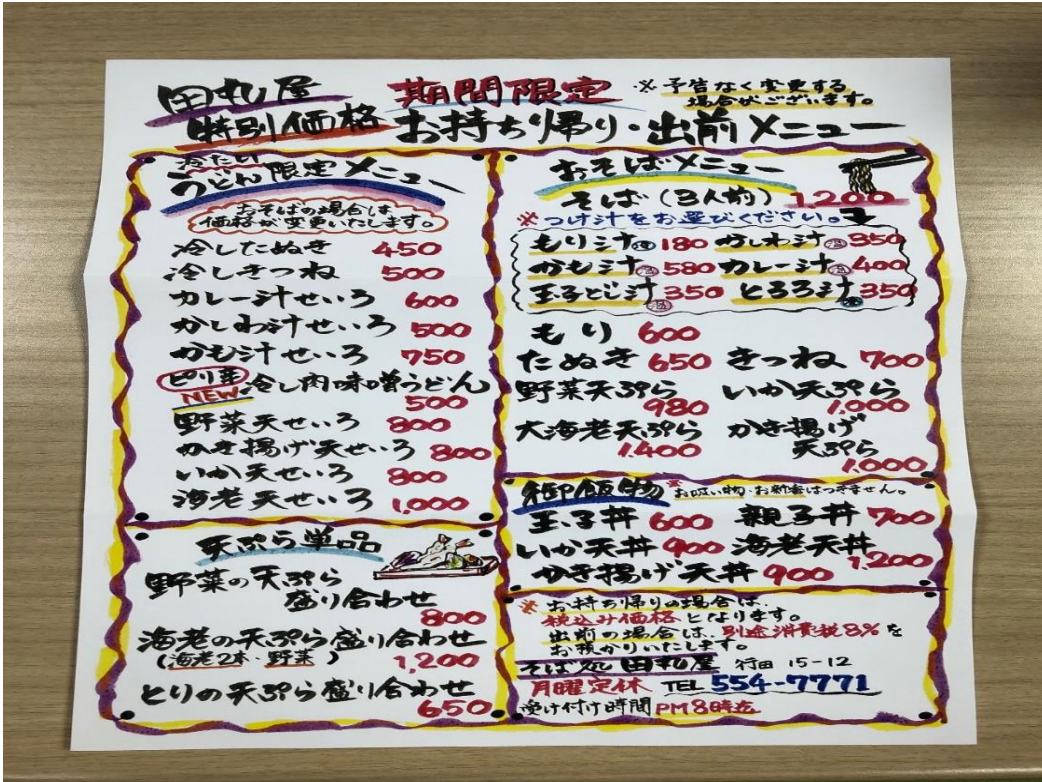 田丸屋 期間限定 ※予告なく変更する
場合がございます。
特別価格 お持ち帰り・出前メニュー
冷たい
うどん限定メニュー
おそばの場合は
価格が変更いたします。
冷したぬき 450
冷しきつね 500
カレー汁せいろ 600
かしわ汁せいろ 500
かも汁せいろ 750
ピリ辛 冷し肉味噌うどん
NEW 500
野菜天せいろ 800
かき揚げ天せいろ 800
いか天せいろ 800
海老天せいろ 1,000
天ぷら単品
野菜の天ぷら
盛り合わせ
800
海老の天ぷら盛り合わせ
(海老2本・野菜) 1,200
とりの天ぷら盛り合わせ
650
おそばメニュー
そば(3人前) 1,200
※つけ汁をお選びください。
もり汁 180 かしわ汁 350
かも汁 580 カレー汁 400
玉子とじ汁 350 とろろ汁 350
もり 600
たぬき 650 きつね 700
野菜天ぷら いか天ぷら
980 1,000
大海老天ぷら かき揚げ
1,400 天ぷら
1,000
御飯物 ※お吸い物・お新香はつきません。
玉子丼 600 親子丼 700
いか天丼 900 海老天丼
かき揚げ天丼 900 1,200
※お持ち帰りの場合は、
税込み価格となります。
※出前の場合は、別途消費税8%を
お預かりいたします。
そば処 田丸屋 行田 15-12
月曜定休 TEL 554-7771
受け付け時間 PM8時迄